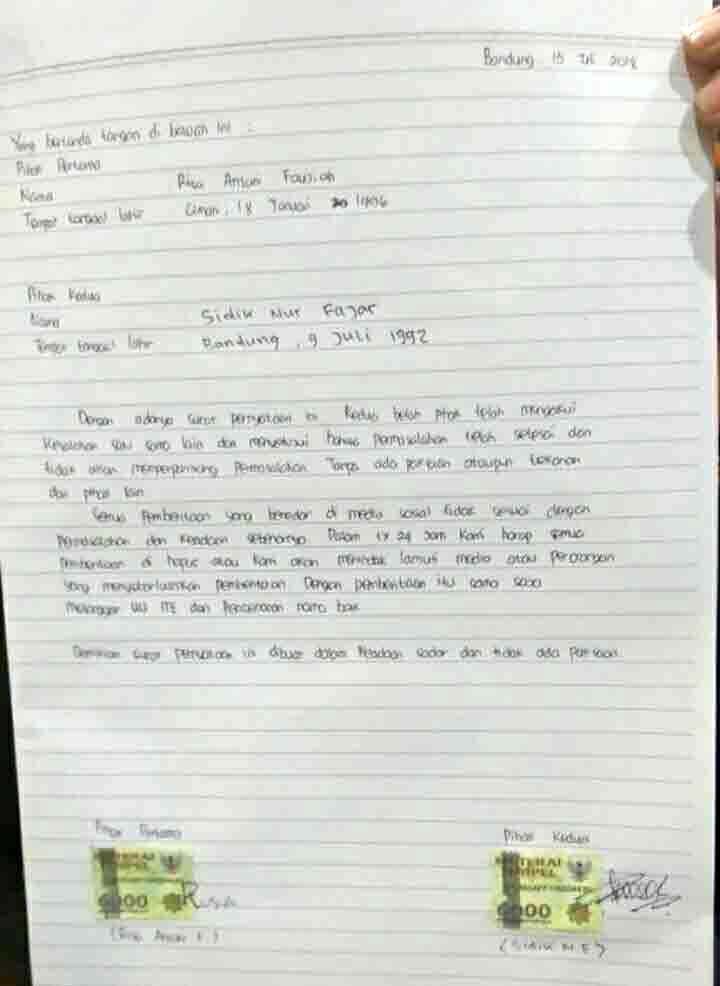 Bandung 15 Juli 2018
Yang bertanda tangan di bawah ini :
Pihak Pertama
Nama
Ansari Fauziah
Tempat tanggal lahir
18 Januari 1996
Pihak Kedua
Nama Sidik Nur Fajar
Tempat tanggal lahir Bandung, 9 Juli 1992
Dengan adanya surat pernyataan ini Kedua belah pihak telah mengakui
Kesalahan satu sama lain dan menyetujui bahwa permasalahan telah selesai dan
tidak akan memperpanjang permasalahan Tanpa ada paksaan ataupun tekanan
dari pihak lain
Semua Pemberitaan yang beredar di media sosial tidak sesuai dengan
Permasalahan dan Keadaan sebenarnya Dalam 1x 24 Jam Kami harap semua
Pemberitaan di hapus atau Kami akan menindak lanjuti media atau Perorangan
yang menyebarluaskan pemberitaan Dengan pemberitaan itu sama saja
melanggar UU ITE dan Pencemaran nama baik
Demikian surat pernyataan ini dibuat dalam Keadaan sadar dan tidak ada Paksaan
Pihak Pertama
Pihak Kedua
METERAI
TEMPEL
6000
METERAI
TEMPEL
6000
(SIDIK N.F)